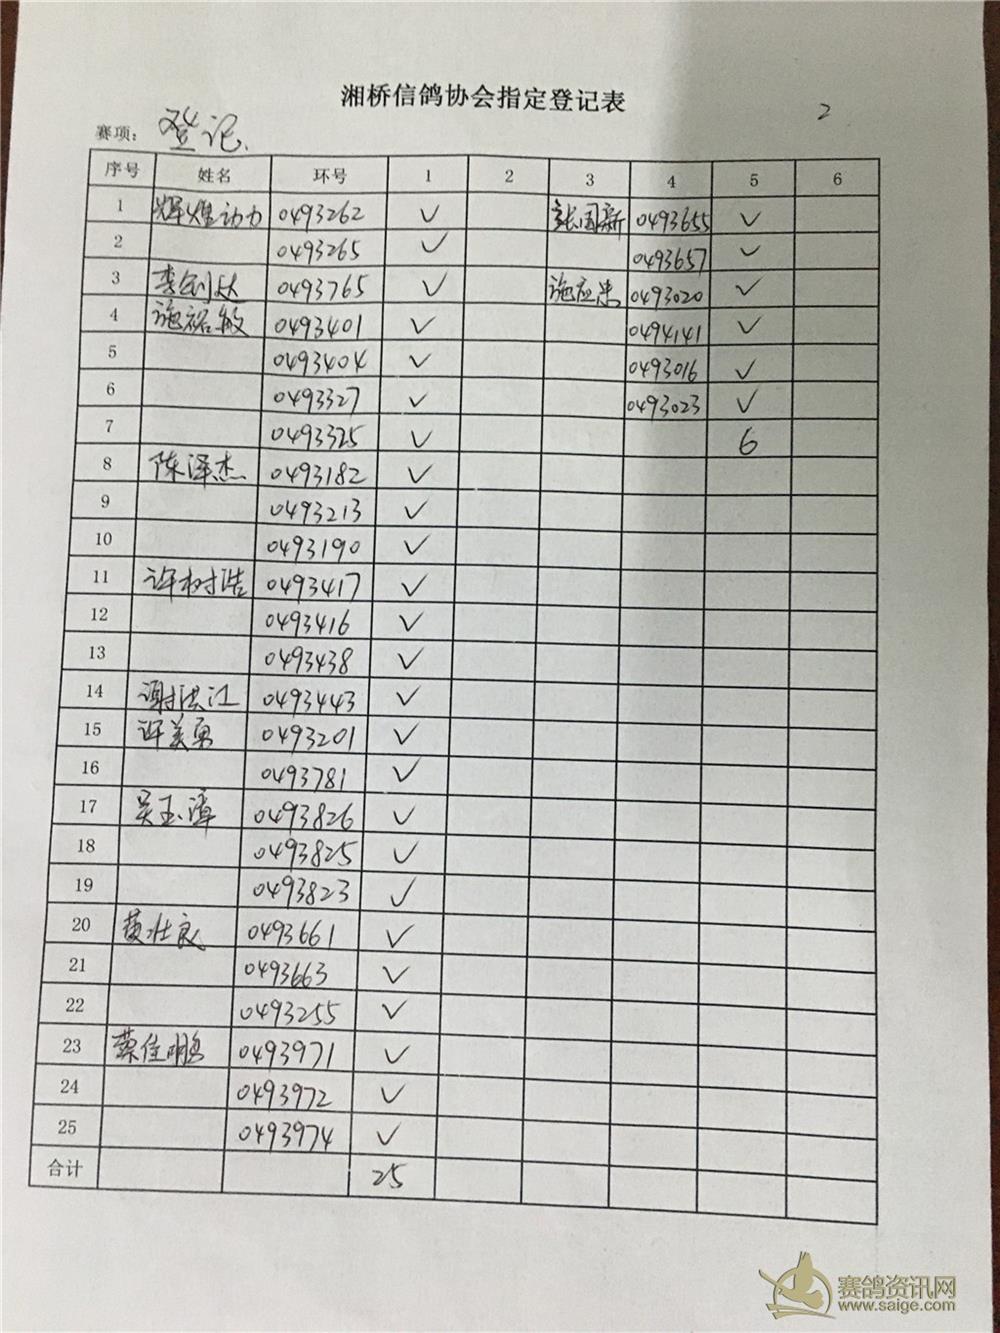 湘桥信鸽协会指定登记表
2
赛项: 登记
序号 姓名 环号 1 2 3 4 5 6
1 辉煌动力 0493262 ✓ 张国新 0493655 ✓
2 0493265 ✓ 0493657 ✓
3 李剑达 0493765 ✓ 施应忠 0493020 ✓
4 施裕敏 0493401 ✓ 0494141 ✓
5 0493404 ✓ 0493016 ✓
6 0493327 ✓ 0493023 ✓
7 0493325 ✓ 6
8 陈泽杰 0493182 ✓
9 0493213 ✓
10 0493190 ✓
11 许树浩 0493417 ✓
12 0493416 ✓
13 0493438 ✓
14 谢洪江 0493443 ✓
15 许美勇 0493201 ✓
16 0493781 ✓
17 吴玉潭 0493826 ✓
18 0493825 ✓
19 0493823 ✓
20 黄壮良 0493661 ✓
21 0493663 ✓
22 0493255 ✓
23 蔡佳鹏 0493971 ✓
24 0493972 ✓
25 0493974 ✓
合计 25
赛鸽资讯网
www.saige.com